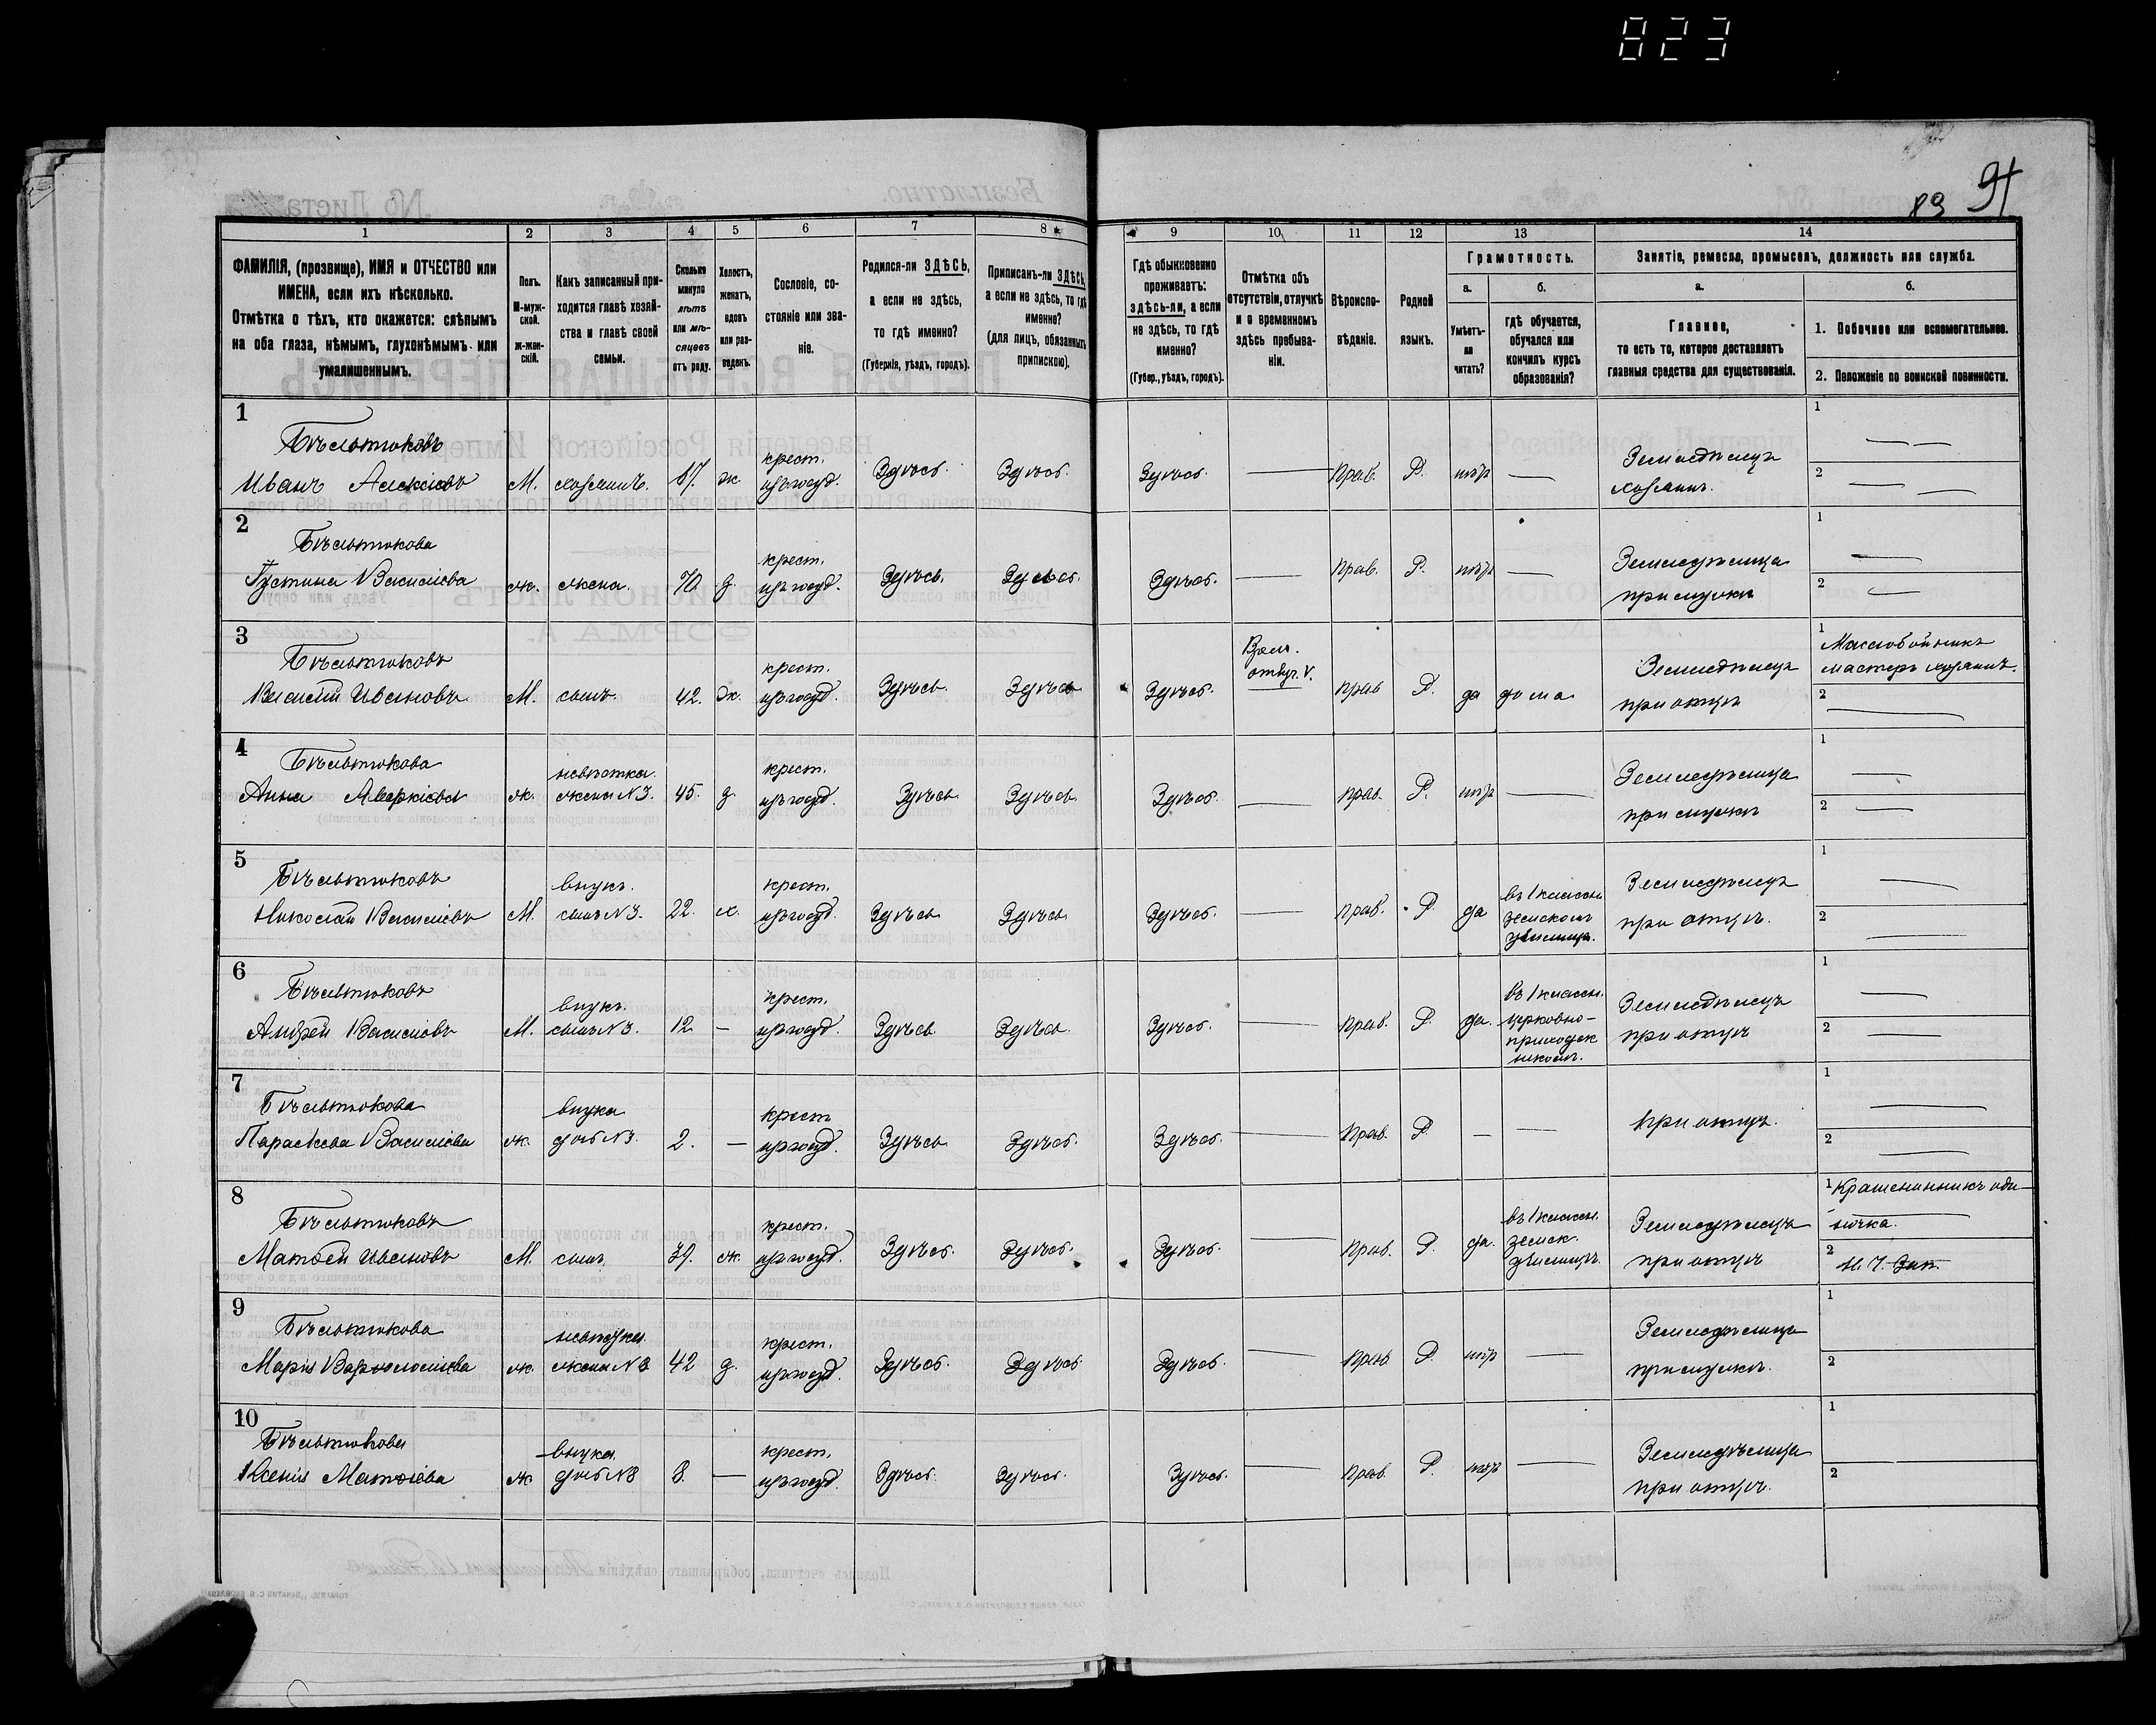 823
91
89
1 2 3 4 5 6 7 8 9 10 11 12 13 14
ФАМИЛІЯ, (прозвище), ИМЯ и ОТЧЕСТВО или
ИМЕНА, если ихъ нѣсколько.
Отмѣтка о тѣхъ, кто окажется: слѣпымъ
на оба глаза, нѣмымъ, глухонѣмымъ или
умалишеннымъ.
Полъ.
М-муж-
ской.
ж-жен-
скій.
Какъ записанный при-
ходится главѣ хозяй-
ства и главѣ своей
семьи.
Сколько
минуло
лѣтъ
или мѣ-
сяцевъ
отъ роду.
Холостъ,
женатъ,
вдовъ
или раз-
веденъ.
Сословіе, со-
стояніе или зва-
ніе.
Родился-ли ЗДѢСЬ,
а если не здѣсь,
то гдѣ именно?
(Губернія, уѣздъ, городъ).
Приписанъ-ли ЗДѢСЬ,
а если не здѣсь, то гдѣ
именно?
(для лицъ, обязанныхъ
припискою).
Гдѣ обыкновенно
проживаетъ:
здѣсь-ли, а если
не здѣсь, то гдѣ
именно?
(Губер., уѣздъ, городъ).
Отмѣтка объ
отсутствіи, отлучкѣ
и о временномъ
здѣсь пребыва-
ніи.
Вѣроиспо-
вѣданіе.
Родной
языкъ.
Грамотность.
а.
Умѣетъ-
ли
читать?
б.
гдѣ обучается,
обучался или
кончилъ курсъ
образованія?
Занятіе, ремесло, промыселъ, должность или служба.
а.
Главное,
то есть то, которое доставляетъ
главныя средства для существованія.
б.
1. Побочное или вспомогательное.
2. Положеніе по воинской повинности.
1
Бѣльтюковъ
Иванъ Алексѣевъ М. хозяинъ. 67. ж.
крест.
изъ госуд. Здѣсь. Здѣсь. Здѣсь. — Прав. Р. нѣтъ —
Земледѣлецъ
хозяинъ.
1 — —
2 — —
2
Бѣльтюкова
Устинья Василіева ж. жена. 70. з.
крест.
изъ госуд. Здѣсь. Здѣсь. Здѣсь. — Прав. Р. нѣтъ —
Земледѣлица
при мужѣ
1 —
2 —
3
Бѣльтюковъ
Василій Ивановъ М. сынъ. 42. ж.
крест.
изъ госуд. Здѣсь Здѣсь Здѣсь.
Врем.
отлуч. V. прав Р. да дома
Земледѣлецъ
при отцѣ
1 Маслобойникъ
мастеръ хозяинъ.
2 —
4
Бѣльтюкова
Анна Аверкіева ж.
невѣстка.
жена N3. 45. з.
крест.
изъ госуд. Здѣсь Здѣсь Здѣсь. — прав. Р. нѣтъ —
Земледѣлица
при мужѣ
1 —
2 —
5
Бѣльтюковъ
Николай Василіевъ М.
внукъ.
сынъ N3. 22. х.
крест.
изъ госуд. Здѣсь Здѣсь Здѣсь. — прав. Р. да
въ 1 классн.
земскомъ
училищѣ.
Земледѣлецъ
при отцѣ.
1 —
2 —
6
Бѣльтюковъ
Андрей Василіевъ М.
внукъ.
сынъ N3. 12 —
крест.
изъ госуд. Здѣсь Здѣсь. Здѣсь. — прав. Р. да.
въ 1 классн.
церковно-
приходск
школѣ.
Земледѣлецъ
при отцѣ
1 —
2 —
7
Бѣльтюкова
Параскева Василіева ж.
внука
дочь N3. 2. —
крест
изъ госуд. Здѣсь Здѣсь. Здѣсь. — Прав. Р. — —
при отцѣ.
1 —
2 —
8
Бѣльтюковъ
Матѳей Ивановъ М. сынъ 39. ж.
крест.
изъ госуд. Здѣсь. Здѣсь. Здѣсь. — Прав. Р. да.
въ 1 классн.
земск.
училищѣ.
Земледѣлецъ
при отцѣ
1 Крашенинникъ оди-
ночка.
2
9
Бѣльтюкова
Марія Варѳоломіева ж.
жена N 8 42 з.
крест.
изъ госуд. Здѣсь. Здѣсь Здѣсь. — Прав. Р. нѣтъ —
Земледѣлица
при мужѣ.
1
2
10
Бѣльтюкова
Ксенія Матѳіева ж
внука.
дочь N8 8. —
крест.
изъ госуд. Здѣсь. Здѣсь. Здѣсь. — Прав. Р. нѣтъ —
Земледѣлица
при отцѣ.
1
2